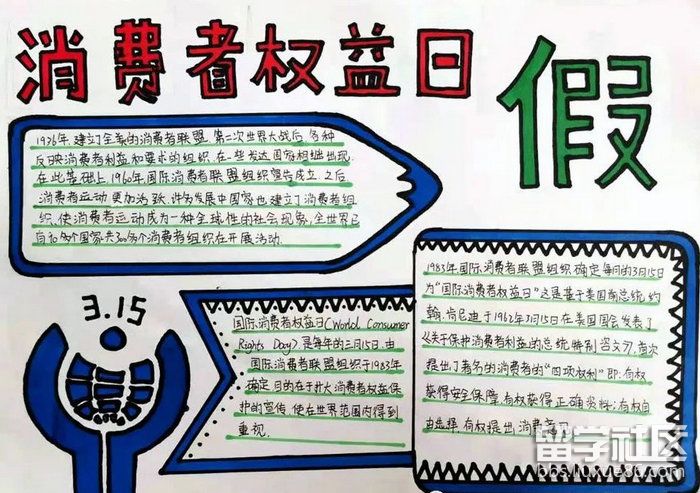 消费者权益日
假
1936年,建立了全美的消费者联盟.第二次世界大战后,各种
反映消费者利益和要求的组织,在一些发达国家相继出现.
在此基础上,1960年国际消费者联盟组织宣告成立.之后,
消费者运动更加活跃,许多发展中国家也建立了消费者组
织,使消费者运动成为一种全球性的社会现象,全世界已
有90多个国家共300多个消费者组织在开展活动.
3.15
国际消费者权益日(World Consumer
Rights Day)是每年的三月15日,由
国际消费者联盟组织于1983年
确定,目的在于扩大消费者权益保
护的宣传,使在世界范围内得到
重视.
1983年国际消费者联盟组织确定每年的3月15日
为"国际消费者权益日"这是基于美国前总统约
翰.肯尼迪于1962年3月15日在美国国会发表了
《关于保护消费者利益的总统特别咨文》,首次
提出了著名的消费者的"四项权利"即:有权
获得安全保障,有权获得正确资料;有权自
由选择,有权提出消费意见.
留学社区
bbs.liuxue86.com